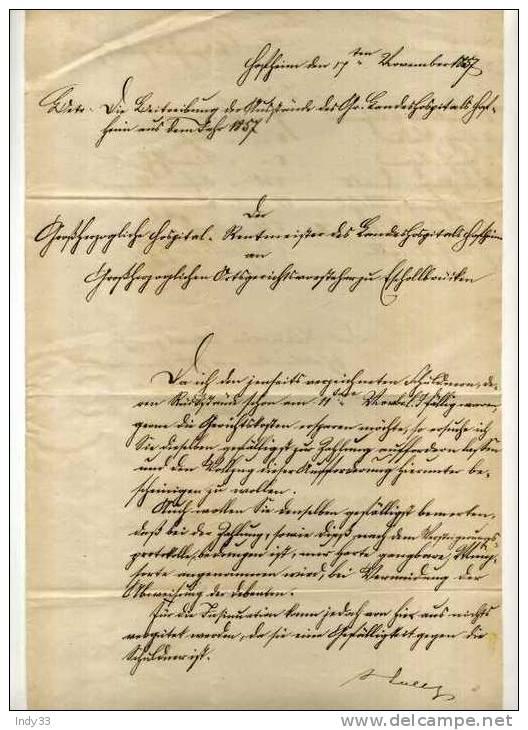 Hofheim den 17ten November 1857
Betr. Die Beitreibung der Ausstände des Gr. Landeshospitals Hof-
heim aus dem Jahr 1857
Der
Großherzogliche Hospital-Rentmeister des Landeshospitals Hofheim
an
Großherzoglichen Ortsgerichtsvorsteher zu Eschollbrücken
Da ich den jenseits verzeichneten Schuldnern, de-
ren Rückstände schon am 11ten fällig waren,
gerne die Gerichtskosten ersparen möchte, so ersuche ich
Sie dieselben gefälligst zu Zahlung auffordern lassen
und den Vollzug dieser Aufforderung hierunter be-
scheinigen zu wollen.
Auch wollen Sie denselben gefälligst bemerken,
daß bei der Zahlung, sowie dieß nach dem Versteigerungs-
protokolle bedungen ist, nur harte gangbare Münz-
sorte angenommen wird, bei Vermeidung der
Abweisung der Debenten.
Für die Insinuation kann jedoch von hier aus nichts
vergütet werden, da sie eine Gefälligkeit gegen die
Schuldner ist.
Indy33